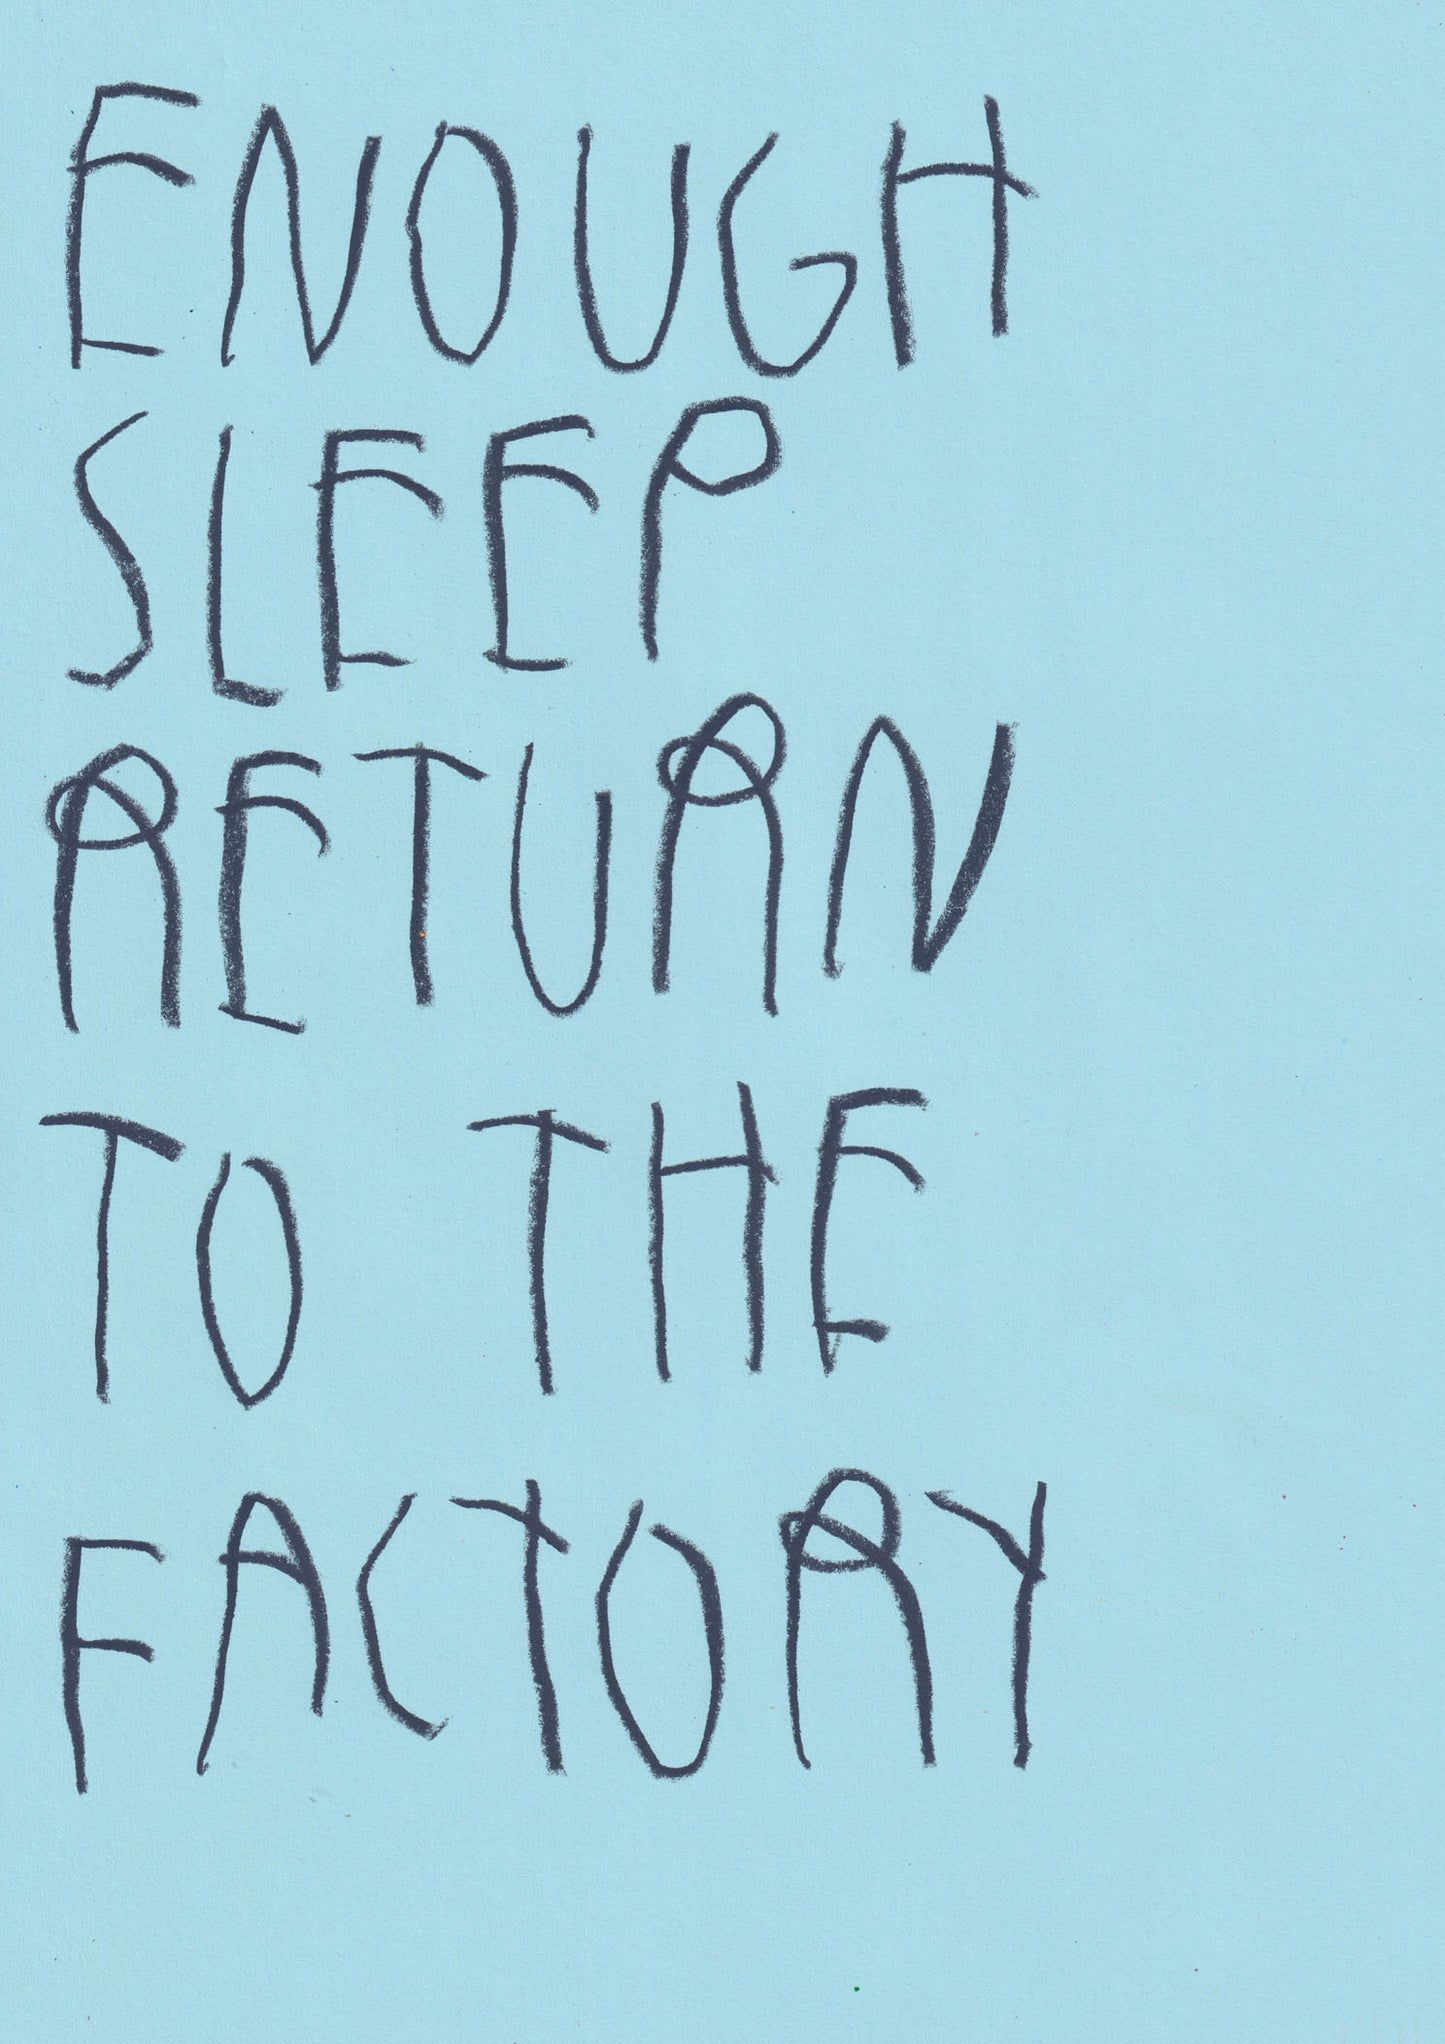 ENOUGH
SLEEP
RETURN
TO THE
FACTORY